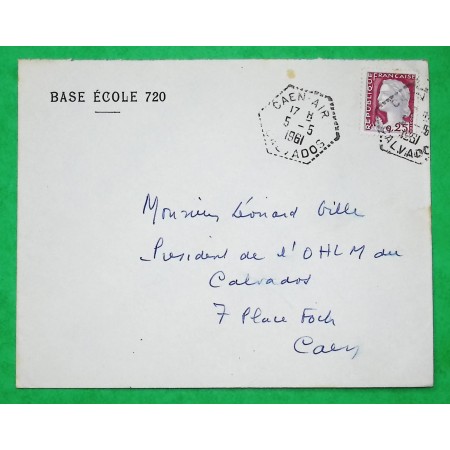 BASE ÉCOLE 720
CAEN-AIR
17 H
5 - 5
1961
CALVADOS
RÉPUBLIQUE FRANÇAISE
0.25
1961
CALVADOS
Monsieur Léonard Gille
President de l'OHLM du
Calvados
7 Place Foch
Caen